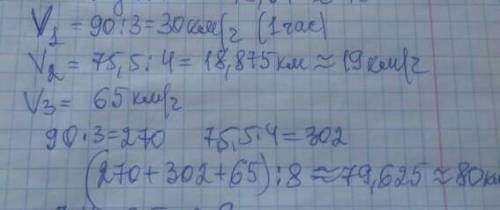 V₁ = 90:3=30км/г (1час)
V₂ = 75,5:4 = 18,875км ≈ 19км/г
V₃ = 65км/г
90·3=270 75,5·4=302
(270+302+65):8≈79,625≈80к